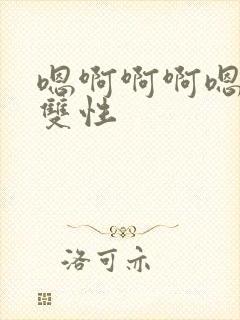 嗯啊啊啊嗯
雙性
洛可亦